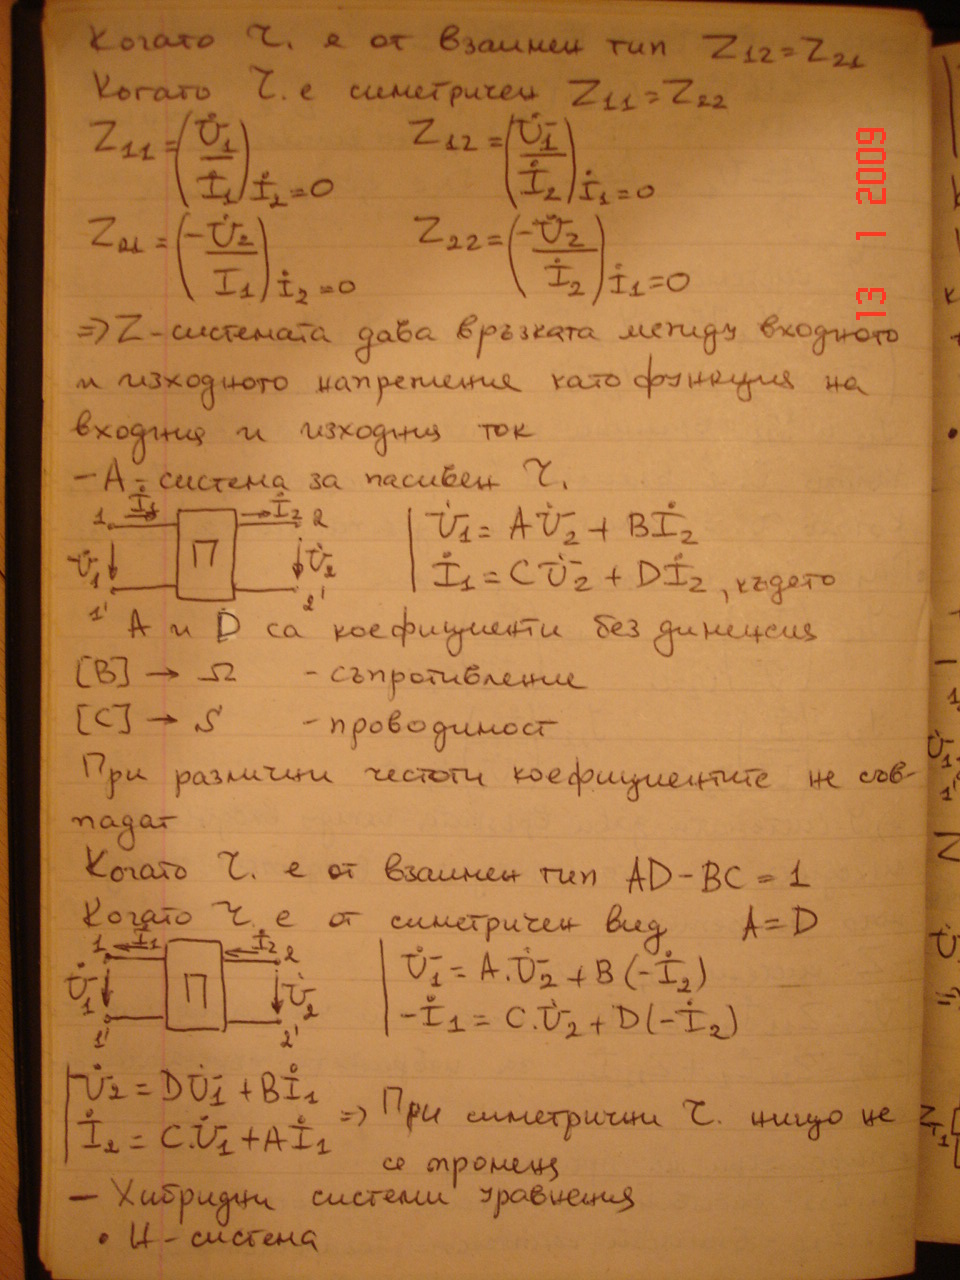 Когато Ч. е от взаимен тип Z12=Z21
Когато Ч. е симетричен Z11=Z22
Z11=(U̇1/İ1)İ2=0 Z12=(U̇1/İ2)İ1=0
Z21=(-U̇2/I1)İ2=0 Z22=(-U̇2/İ2)İ1=0
=> Z-системата дава връзката между входното
и изходното напрежение като функция на
входния и изходния ток
- А-система за пасивен Ч.
1 İ1 П İ2 2 U̇1 U̇2 1' 2'
U̇1= AU̇2 + Bİ2
İ1 = CU̇2 + Dİ2, където
A и D са коефициенти без дименсия
[B] → Ω - съпротивление
[C] → S - проводимост
При различни честоти коефициентите не съв-
падат
Когато Ч. е от взаимен тип AD-BC=1
Когато Ч. е от симетричен вид A=D
1 İ1 П İ2 2 U̇1 U̇2 1' 2'
U̇1= A.U̇2 + B(-İ2)
-İ1 = C.U̇2 + D(-İ2)
U̇2 = DU̇1 + Bİ1
İ2 = C.U̇1 + Aİ1 => При симетрични Ч. нищо не
се променя
- Хибридни системи уравнения
• H-система
13 1 2009